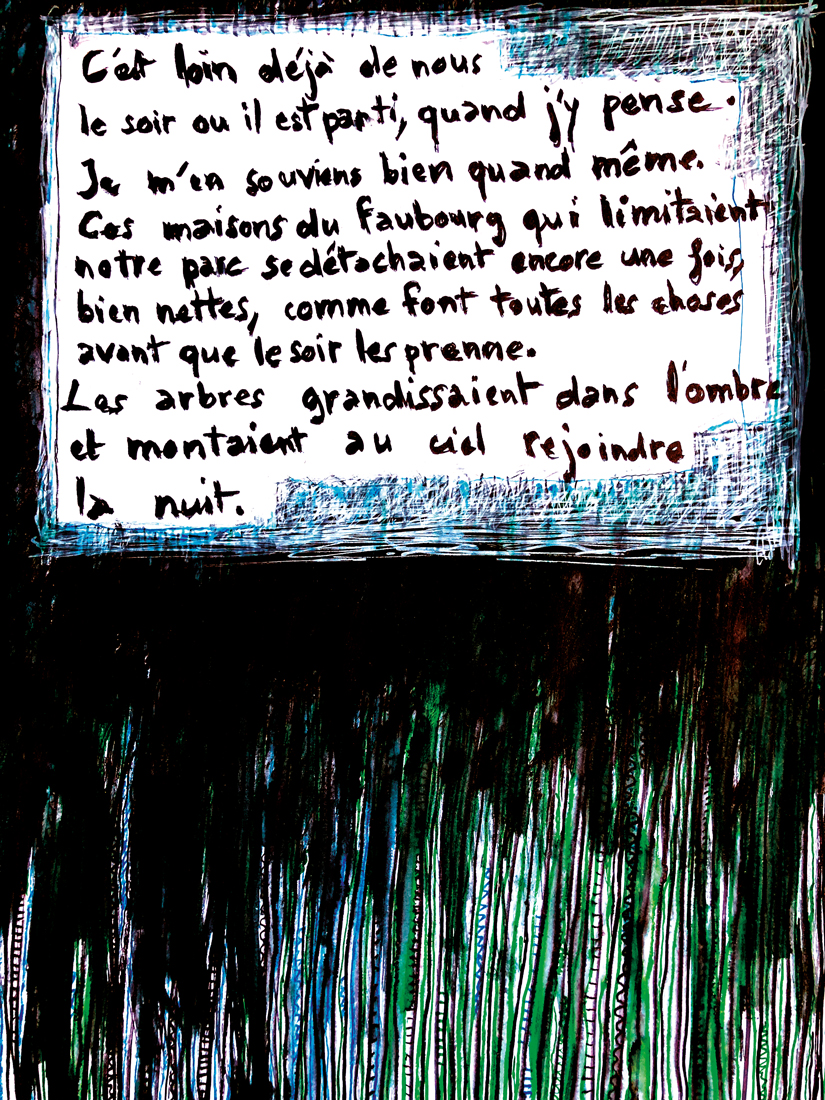 C'est loin déjà de nous
le soir ou il est parti, quand j'y pense.
Je m'en souviens bien quand même.
Ces maisons du faubourg qui limitaient
notre parc se détachaient encore une fois,
bien nettes, comme font toutes les choses
avant que le soir les prenne.
Les arbres grandissaient dans l'ombre
et montaient au ciel rejoindre
la nuit.